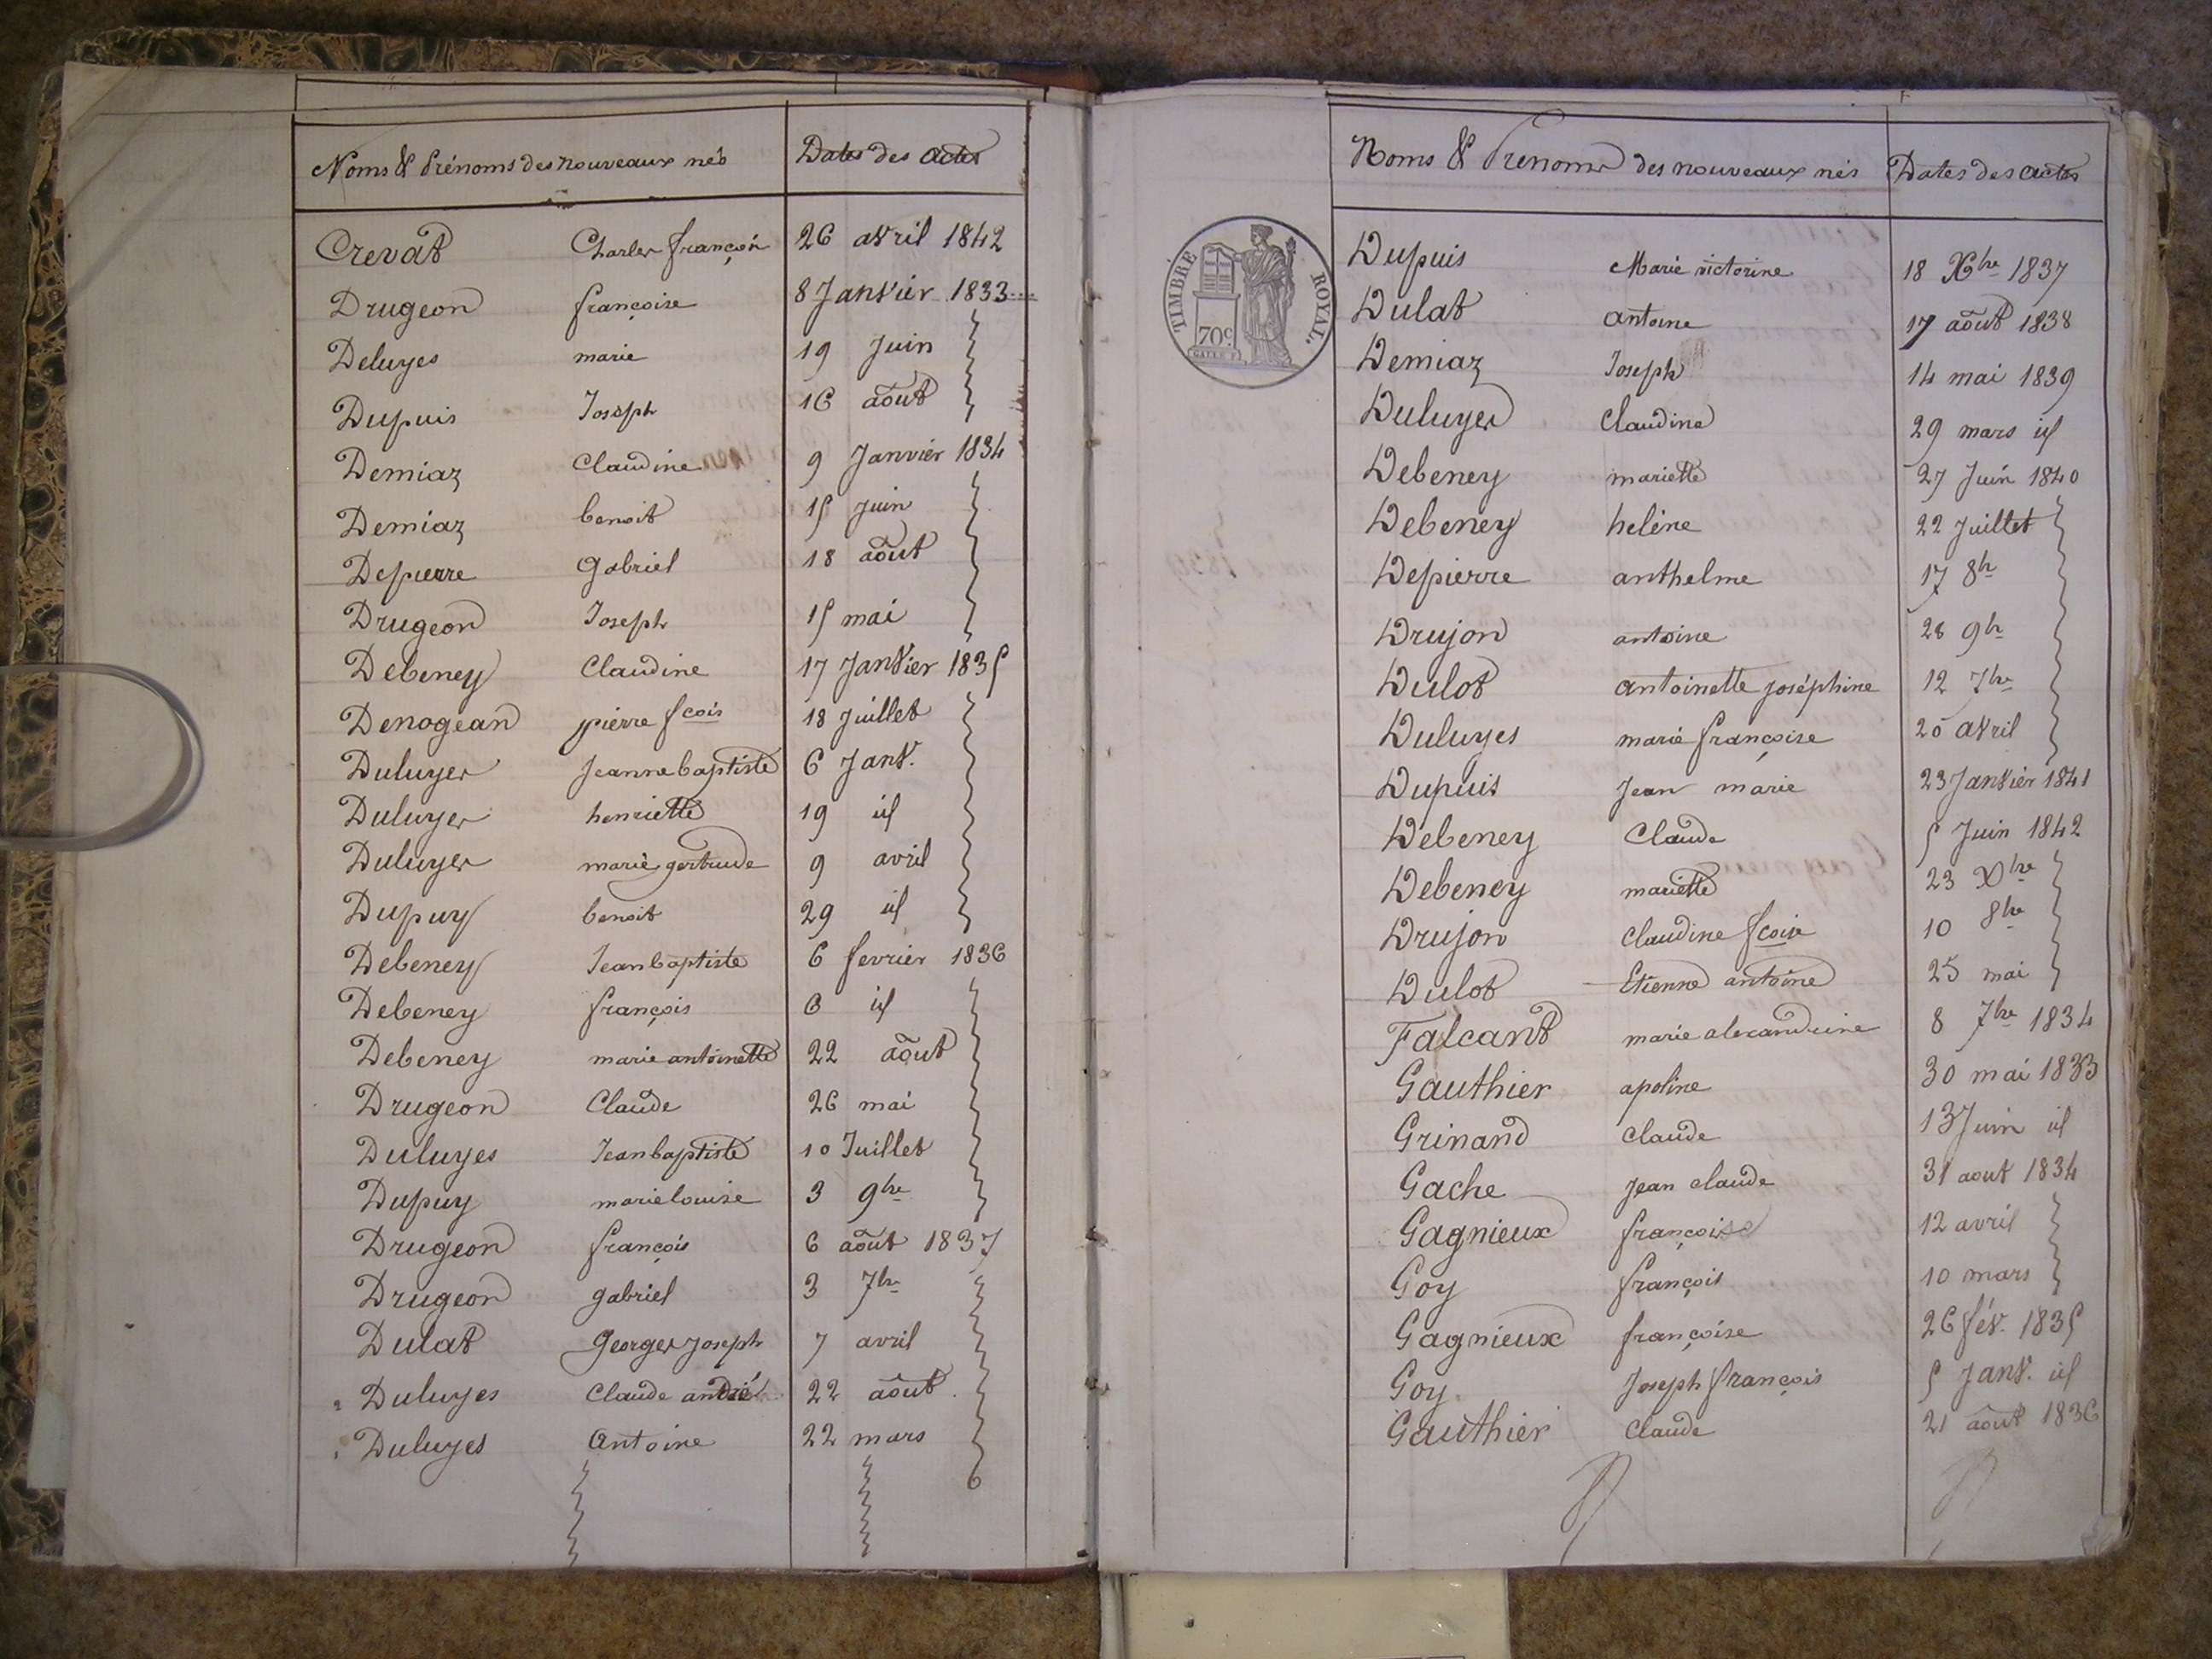 Noms & Prénoms des nouveaux nés Dates des actes
Crevat Charles françois 26 avril 1842
Drugeon françoise 8 Janvier 1833
Deluyes marie 19 Juin
Dupuis Joseph 16 août
Demiaz Claudine 9 Janvier 1834
Demiaz benoit 15 juin
Depierre Gabriel 18 août
Drugeon Joseph 15 mai
Debeney Claudine 17 Janvier 1835
Denogean pierre fcois 18 Juillet
Duluyes Jeanne baptiste 6 Janv.
Duluyes henriette 19 id
Duluyes marie gertrude 9 avril
Dupuy benoit 29 id
Debeney Jean baptiste 6 fevrier 1836
Debeney françois 6 id
Debeney marie antoinette 22 août
Drugeon Claude 26 mai
Duluyes Jean baptiste 10 Juillet
Dupuy marie louise 3 9bre
Drugeon françois 6 août 1837
Drugeon gabriel 3 7bre
Dulat Georges Joseph 7 avril
Duluyes Claude andré 22 août
Duluyes Antoine 22 mars
Noms & Prenoms des nouveaux nés Dates des actes
TIMBRE ROYAL.
70c.
Dupuis Marie victorine 18 Xbre 1837
Dulat antoine 17 août 1838
Demiaz Joseph 14 mai 1839
Duluyes Claudine 29 mars id
Debeney mariette 27 Juin 1840
Debeney heléne 22 Juillet
Depierre anthelme 17 8bre
Drujon antoine 28 9bre
Dulot antoinette joséphine 12 7bre
Duluyes marie françoise 20 avril
Dupuis Jean marie 23 Janvier 1841
Debeney Claude 5 Juin 1842
Debeney mariette 23 Xbre
Drujon Claudine fcoise 10 8bre
Dulot Etienne antoine 25 mai
Falcant marie alexandrine 8 7bre 1834
Gauthier apoline 30 mai 1833
Grinand Claude 13 Juin id
Gache Jean claude 31 aout 1834
Gagnieux françoise 12 avril
Goy françois 10 mars
Gagnieux françoise 26 fév. 1835
Goy Joseph françois 5 Janv. id
Gauthier Claude 21 août 1836